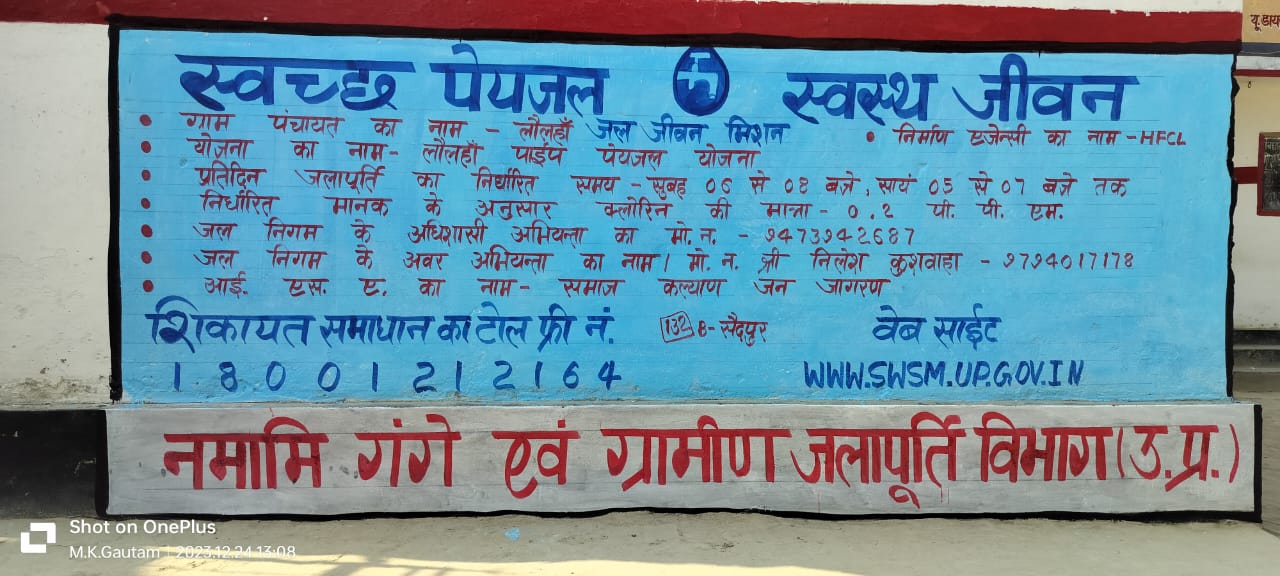 स्वच्छ पेयजल स्वस्थ जीवन
• ग्राम पंचायत का नाम - लौलहाँ जल जीवन मिशन • निर्माण एजेन्सी का नाम - HFCL
• योजना का नाम - लौलहाँ पाईप पेयजल योजना
• प्रतिदिन जलापूर्ति का निर्धारित समय - सुबह 06 से 08 बजे, सायं 05 से 07 बजे तक
• निर्धारित मानक के अनुसार क्लोरिन की मात्रा - 0.2 पी. पी. एम.
• जल निगम के अधिशासी अभियन्ता का मो. न. - ९473942687
• जल निगम के अवर अभियन्ता का नाम / मो. न. श्री निलेश कुशवाहा - ९7९4017178
• आई. एस. ए. का नाम - समाज कल्याण जन जागरण
शिकायत समाधान का टोल फ्री नं. 132 B- सैदपुर वेब साईट
18001212164 WWW.SWSM.UP.GOV.IN
नमामि गंगे एवं ग्रामीण जलापूर्ति विभाग (उ.प्र.)
Shot on OnePlus
M.K.Gautam | 2023.12.24 13:08